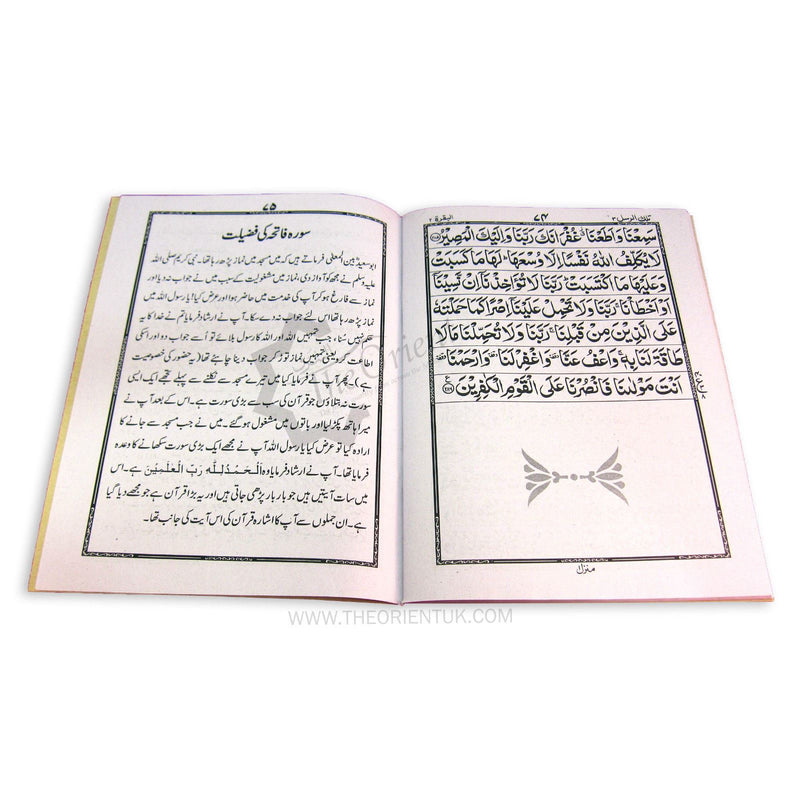 تلك الرسل ٣ ٧٤ البقرة ٢
سَمِعْنَا وَاَطَعْنَا غُفْرَانَكَ رَبَّنَا وَاِلَيْكَ الْمَصِيْرُ
لَا يُكَلِّفُ اللّٰهُ نَفْسًا اِلَّا وُسْعَهَا لَهَا مَا كَسَبَتْ
وَعَلَيْهَا مَا اكْتَسَبَتْ رَبَّنَا لَا تُؤَاخِذْنَا اِنْ نَّسِيْنَا
اَوْ اَخْطَاْنَا رَبَّنَا وَلَا تَحْمِلْ عَلَيْنَا اِصْرًا كَمَا حَمَلْتَهٗ
عَلَى الَّذِيْنَ مِنْ قَبْلِنَا رَبَّنَا وَلَا تُحَمِّلْنَا مَا لَا
طَاقَةَ لَنَا بِهٖ وَاعْفُ عَنَّا وَاغْفِرْ لَنَا وَارْحَمْنَا
اَنْتَ مَوْلٰىنَا فَانْصُرْنَا عَلَى الْقَوْمِ الْكٰفِرِيْنَ
منزل
٧٥
سورہ فاتحہ کی فضیلت
ابو سعید بن المعلیٰ فرماتے ہیں کہ میں مسجد میں نماز پڑھ رہا تھا۔ نبی کریم صلی اللہ
علیہ وسلم نے مجھ کو آواز دی، نماز میں مشغولیت کے سبب میں نے جواب نہ دیا اور
نماز سے فارغ ہو کر آپ کی خدمت میں حاضر ہوا اور عرض کیا! یا رسول اللہ میں
نماز پڑھ رہا تھا اس لئے جواب نہ دے سکا۔ آپ نے ارشاد فرمایا تم نے خدا کا یہ
نہیں سُنا، جب تمہیں اللہ اور اللہ کا رسول بلائے تو اُسے جواب دو اور اسکی
اطاعت کرو یعنی تمہیں نماز توڑ کر جواب دینا چاہئے تھا (یہ حضور کی خصوصیت
ہے)۔ پھر آپ نے فرمایا کیا میں تیرے مسجد سے نکلنے سے پہلے تجھے ایک ایسی
سورت نہ بتلاؤں جو قرآن کی سب سے بڑی سورت ہے۔ اس کے بعد آپ نے
میرا ہاتھ پکڑ لیا اور باتوں میں مشغول ہو گئے۔ میں نے جب مسجد سے جانے کا
ارادہ کیا تو عرض کیا یا رسول اللہ آپ نے مجھے ایک بڑی سورت سکھانے کا وعدہ
فرمایا تھا۔ آپ نے ارشاد فرمایا وہ اَلْحَمْدُلِلّٰہِ رَبِّ الْعٰلَمِیْنَ ہے۔ اس
میں سات آیتیں ہیں جو بار بار پڑھی جاتی ہیں اور یہ بڑا قرآن ہے جو مجھے دیا گیا
ہے۔ ان جملوں سے آپ کا اشارہ قرآن کی اس آیت کی جانب تھا۔
WWW.THEORIENTUK.COM